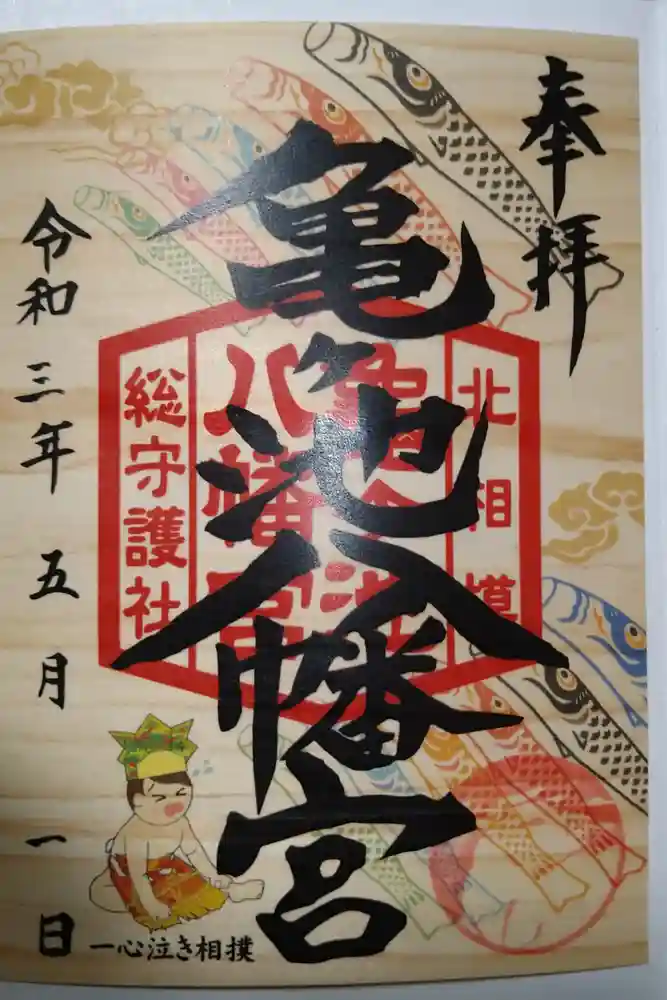 奉拝
北相模
亀ヶ池八幡宮
亀ヶ池
八幡宮
総守護社
令和三年五月一日
一心泣き相撲